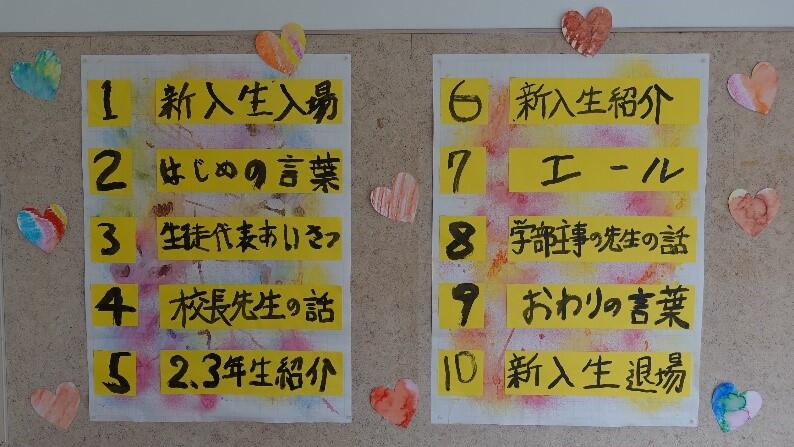 1 新入生入場
2 はじめの言葉
3 生徒代表あいさつ
4 校長先生の話
5 2、3年生紹介
6 新入生紹介
7 エール
8 学部主事の先生の話
9 おわりの言葉
10 新入生退場